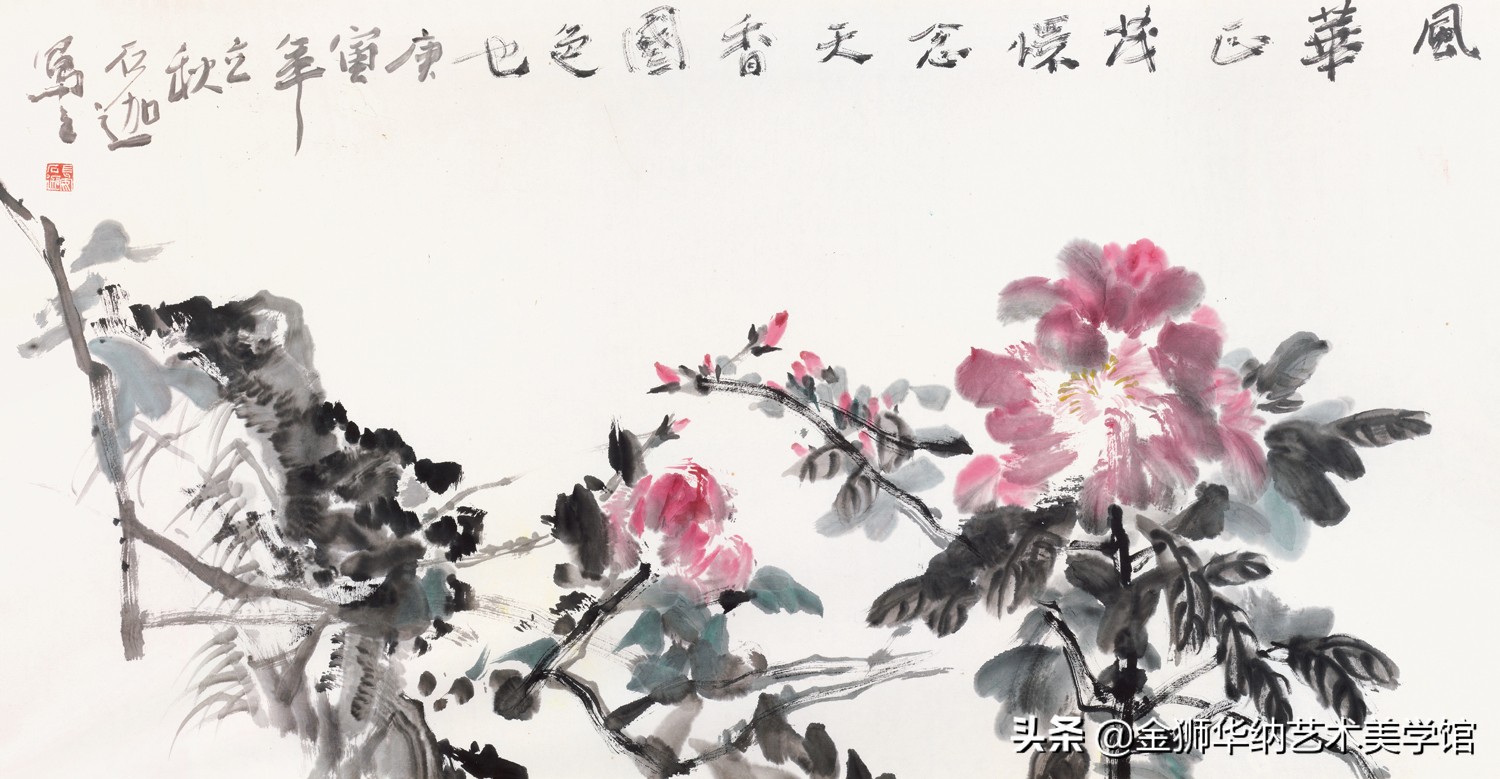 風華正茂懷念天香國色也庚寅年立秋石迦寫之
头条 @金狮华纳艺术美学馆